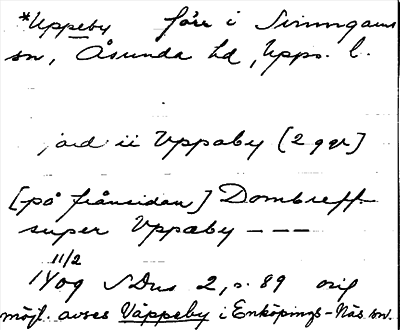 *Uppeby före i Simmgarns
sn, Åsunda hd, Upps. l.
jord ii Uppaby (2 ggr)
[på frånsidan] Dombreff
super Uppaby ---
11/2
1409 SDns 2, s. 89 orig
möjl. avses Väppeby i Enköpings-Näs sn.